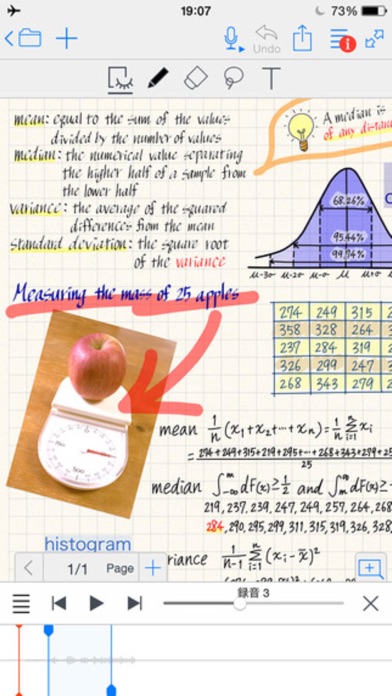 19:07
73%
Undo
T
mean: equal to the sum of the values
divided by the number of values
median: the numerical value separating
the higher half of a sample from
the lower half
variance: the average of the squared
differences from the mean
standard deviation: the square root
of the variance
A median is
of any distan
68.26%
95.44%
99.74%
μ-3σ μ-2σ μ-σ μ μ+σ
Measuring the mass of 25 apples
274 249 315 2
358 328 264
237 284 319
326 299 247
268 343 279
mean 1/n (x₁+x₂+···+xₙ)=1/n Σⁿᵢ₌₁ xᵢ
= 274+249+315+219+295+···+268+343+279+25
25
median ∫ᵐ₋∞ dF(x)≥1/2 and ∫∞ₘ dF(x)≥
219, 237, 239, 247, 249, 257, 264, 268
284, 290, 295, 299, 311, 315, 319, 326, 328,
histogram
riance 1/n-1 Σⁿᵢ₌₁ (xᵢ-x̄)²
1/1 Page
録音 3